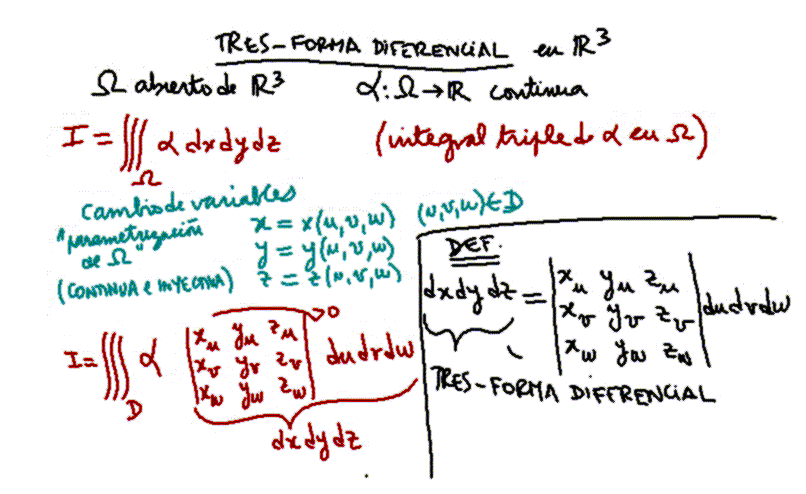 TRES-FORMA DIFERENCIAL en ℝ³
Ω abierto de ℝ³ α: Ω → ℝ continua
I = ∭_Ω α dx dy dz (integral triple de α en Ω)
Cambio de variables
"parametrización de Ω"
(CONTINUA e INYECTIVA)
x = x(u,v,w) (u,v,w) ∈ D
y = y(u,v,w)
z = z(u,v,w)
I = ∭_D α |x_u y_u z_u; x_v y_v z_v; x_w y_w z_w| du dv dw
>0
dx dy dz
DEF.
dx dy dz = |x_u y_u z_u; x_v y_v z_v; x_w y_w z_w| du dv dw
TRES-FORMA DIFERENCIAL